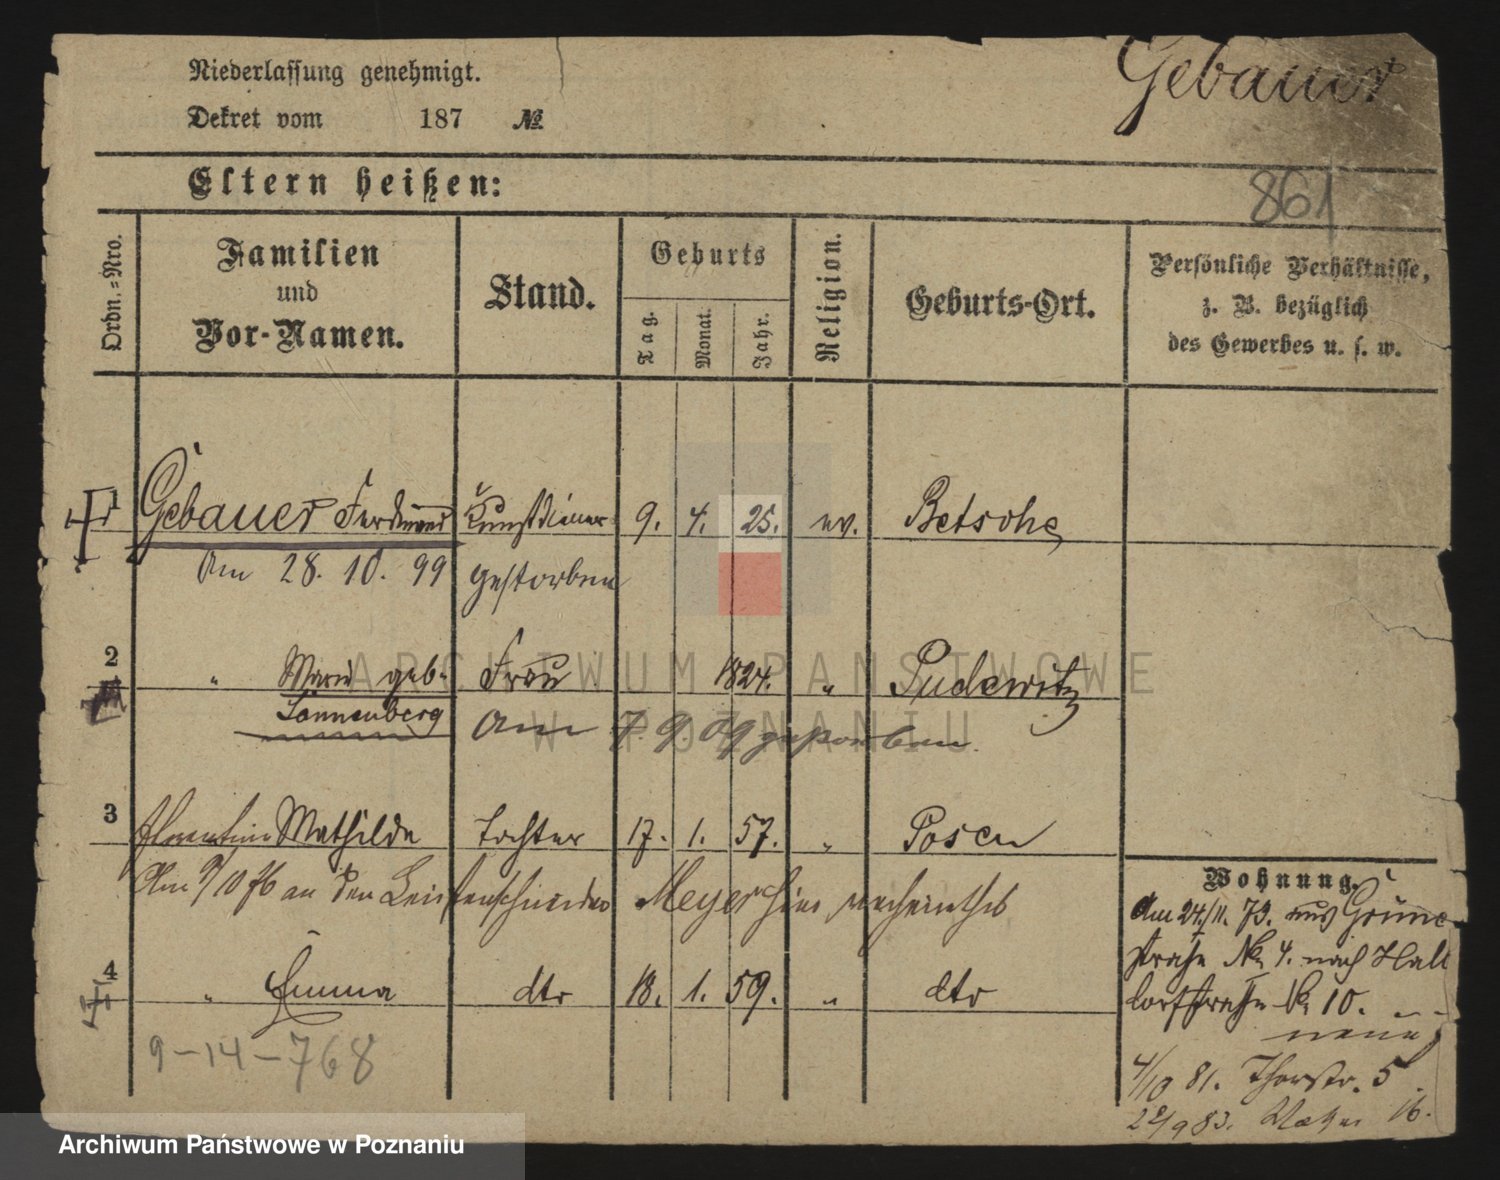 Niederlassung genehmigt.
Gebauer
Dekret vom 187 №
861
Eltern heißen:
Ordn.-Nro.
Familien
und
Vor-Namen.
Stand.
Geburts
Tag.
Monat.
Jahr.
Religion.
Geburts-Ort.
Persönliche Verhältnisse,
z. B. bezüglich
des Gewerbes u. s. w.
1 Gebauer Ferdinand 9. 4. 25. ev. Betsche
Am 28. 10. 99 gestorben
2 " Marie geb. Frau 1824. " Pudewitz
Sonnenberg
Am 7. 9. 09 gestorben.
3 Florentine Mathilde Tochter 17. 1. 57. " Posen
Am 9/10 76 an den Meyer hier verheirathet
4 " Emma dto 18. 1. 59. " dto
9-14-768
Wohnung.
Am 24./11. 73. aus Grüne
straße No 4. nach Hall
dorfstraße No 10.
neue
4/10 81. Thorstr. 5.
16.
ARCHIWUM PAŃSTWOWE
W POZNANIU
Archiwum Państwowe w Poznaniu